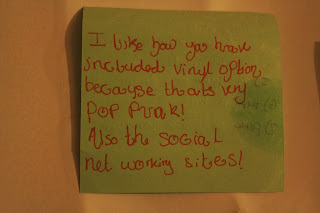 I like how you have
included vinyl option
because thats very
POP PUNK!
Also the social
net working sites!